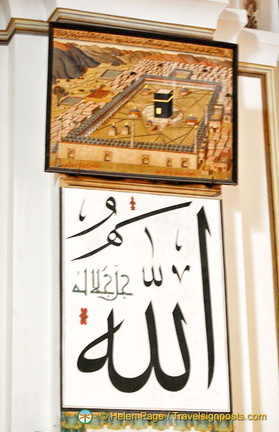 الله
جل جلاله
© Helen Page / Travelsignposts.com